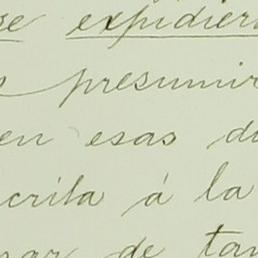 se expidier
presumir
en esas d
crita á la
de tan